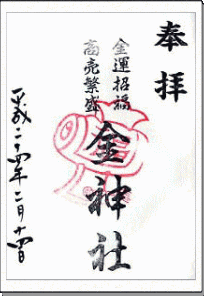 奉拝
金運招福
商売繁盛
金神社
平成二十四年二月十四日